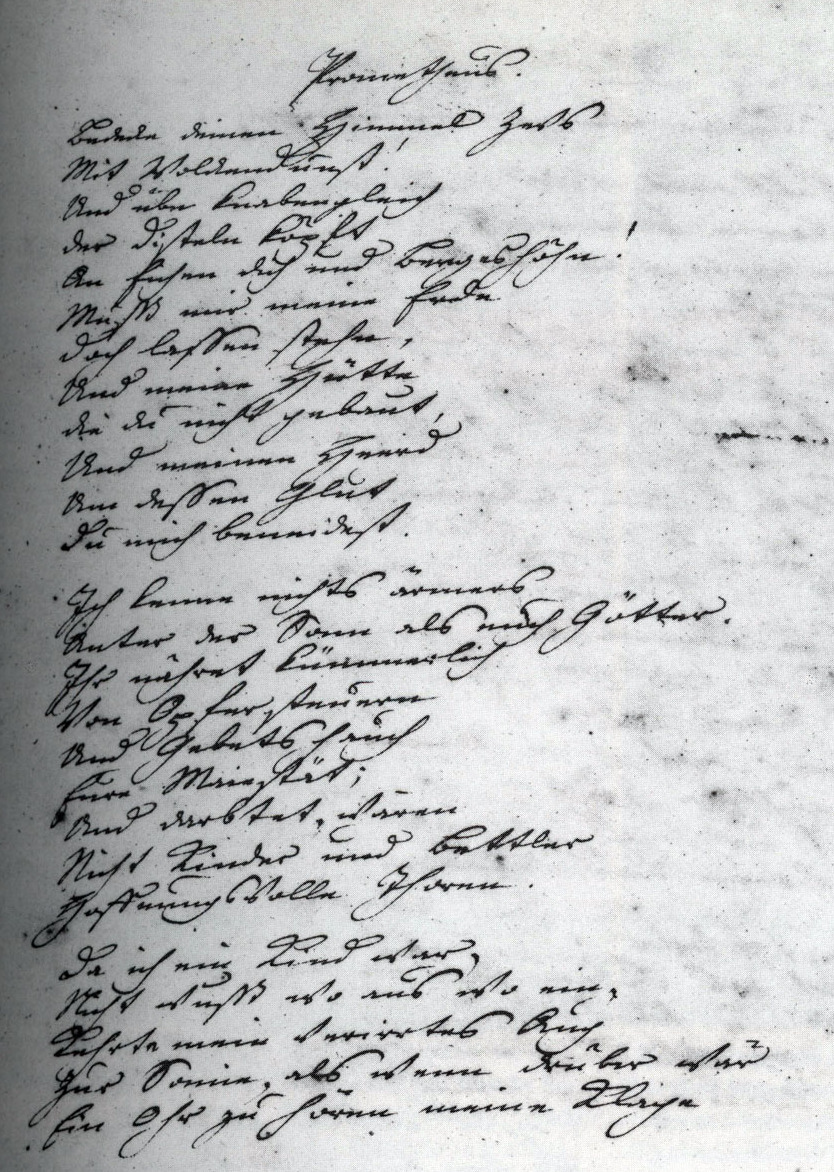 Prometheus.
Bedecke deinen Himmel Zevs
Mit Wolkendunst!
Und übe Knabengleich
der Disteln köpft
An Eichen dich und Bergeshöhn!
Musst mir meine Erde
doch lassen stehn,
Und meine Hütte
die du nicht gebaut,
Und meinen Heerd
Um dessen Glut
Du mich beneidest.
Ich kenne nichts ärmers
Unter der Sonn als euch Götter.
Ihr nähret kümmerlich
Von Opfersteuern
Und Gebetshauch
Eure Maiestät;
Und darbtet, wären
Nicht Kinder und Bettler
Hoffnungsvolle Thoren.
Da ich ein Kind war,
Nicht wusst wo aus wo ein,
Kehrte mein verirrtes Aug
Zur Sonne, als wenn drüber wär
Ein Ohr zu hören meine Klage